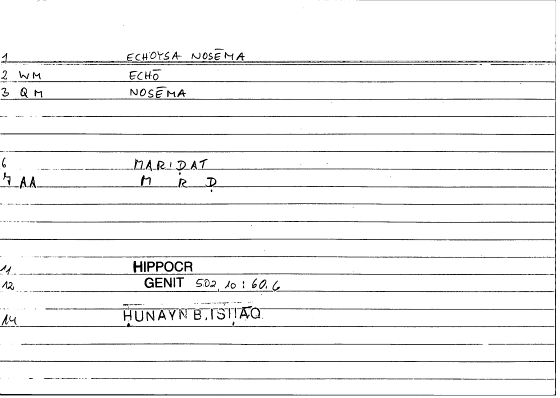 1 ECHOYSA NOSĒMA
2 WM ECHŌ
3 QM NOSĒMA
6 MARIḌAT
7 AA M R Ḍ
11 HIPPOCR
12 GENIT 502,10 : 60,6
14 ḤUNAYN B. ISḤĀQ